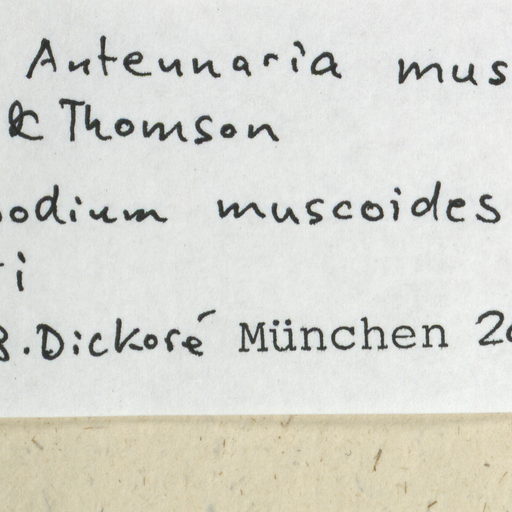 Antennaria mus
& Thomson
podium muscoides
i
B. Dickoré München 20